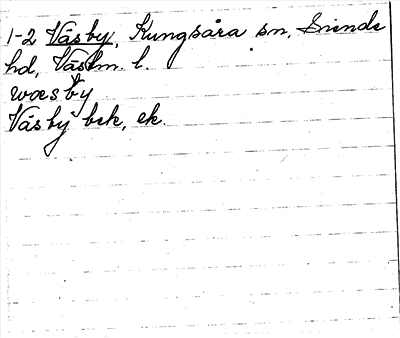 1-2 Väsby, Kungsåra sn, Sninde
hd, Västm. l.
wæsby
Väsby bck, ek.